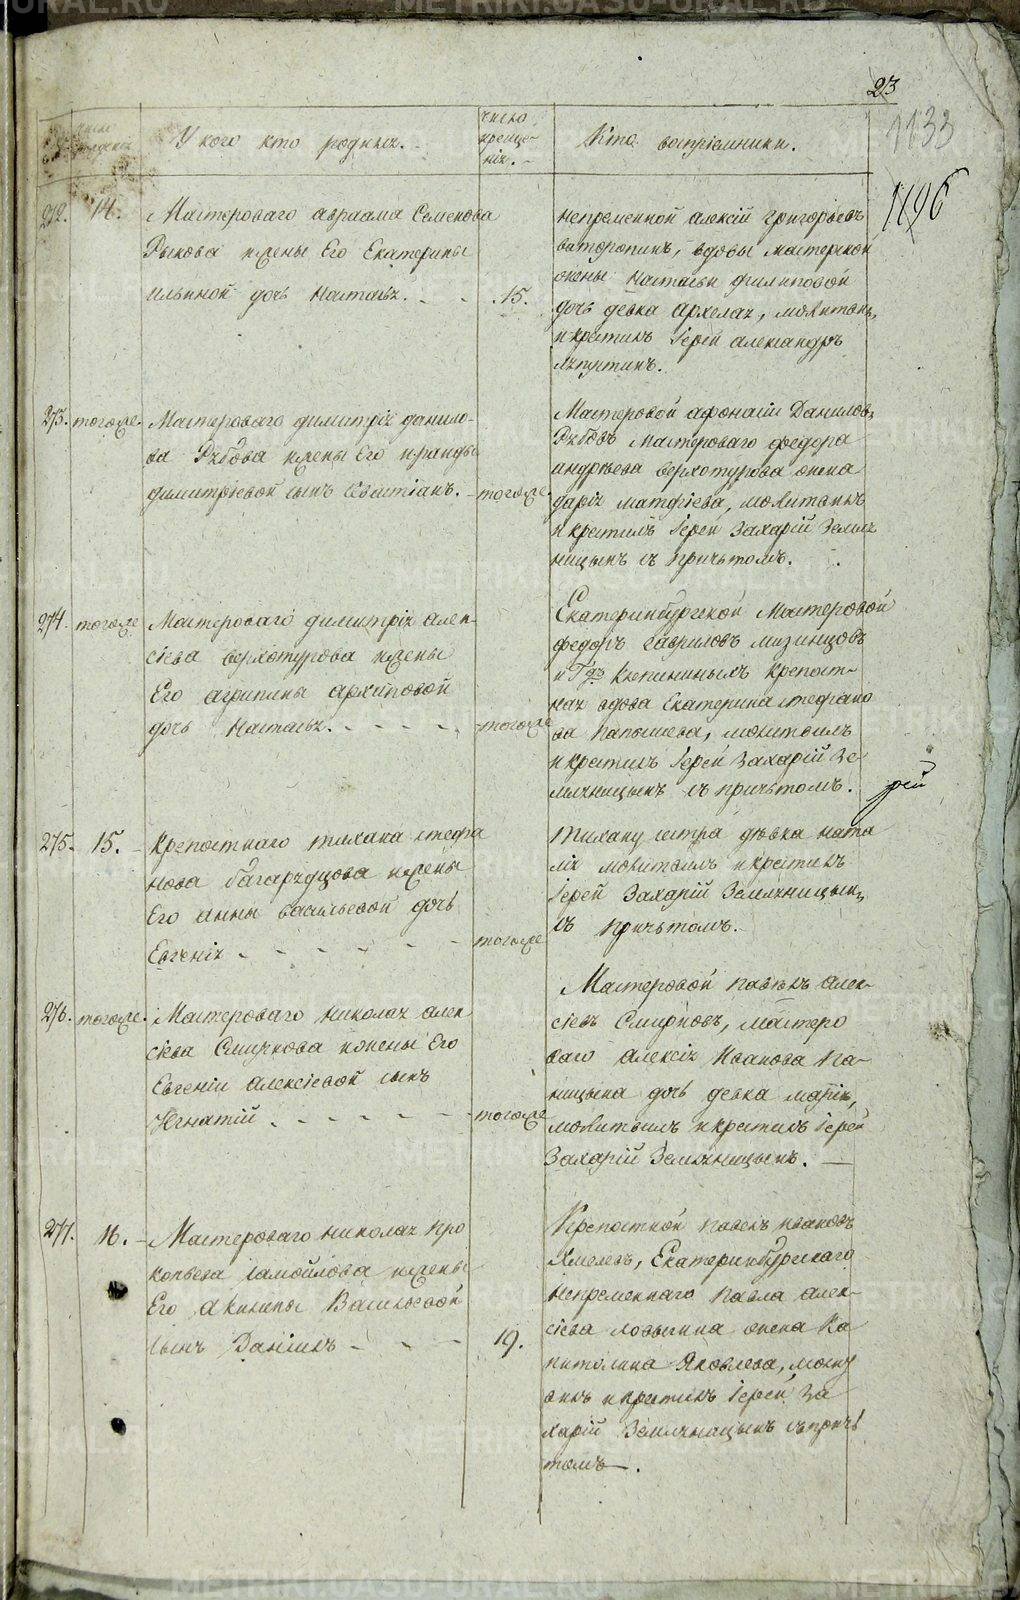 METRIKI.GASO-URAL.RU
23
1133
1196
У кого кто родился.
число
креще-
нія.
Кто воспріемники.
272.
14.
Мастероваго авраама Семенова
Рыкова жены Его Екатерины
ильиной дочь Настасья.
15.
непременной алексій григорьевъ
вдовы мастерской
жены Настасьи филиповой
дочь девка
и крестилъ Іерей александръ
273.
тогоже.
Мастероваго димитрія данило-
ва Рябова жены Его
димитріевой сынъ Севастіанъ.
тогоже.
Мастеровой афонасій Даниловъ
Рябовъ Мастероваго федора
андрѣева верхотурова жена
дарія матфіева, молитвилъ
и крестилъ Іерей Захарій Земля
ницынъ съ причьтомъ.
274.
тогоже
Мастероваго димитрія алек-
сіева верхотурова жены
Его агрипины архиповой
дочь Настасья.
тогоже
Екатеринбургской Мастеровой
федоръ гавриловъ мизинцовъ
и Гдъ крепост-
ная вдова Екатерина стефано
ва молитвилъ
и крестилъ Іерей Захарій Зе-
мляницынъ съ причьтомъ.
рей
275.
15.
Крепостнаго тихана стефа
нова жены
Его анны васильевой дочь
Евгенія
тогоже
Тихану сестра дѣвка ната
лія молитвилъ и крестилъ
Іерей Захарій Земляницынъ
съ причьтомъ.
276.
тогоже.
Мастероваго николая алек
сіева Смирнова жены Его
Евгеніи алексіевой сынъ
Игнатій
тогоже
Мастеровой павелъ алек-
сіевъ Смирновъ, мастеро
ваго алексія Иванова Па-
ницына дочь девка марія,
молитвилъ и крестилъ Іерей
Захарій Земляницынъ.
277.
16.
Мастероваго николая Про
копьева самойлова жены
Его Акилины Васильевой
сынъ Даніилъ
19.
Крепостной павелъ ивановъ
Хмелевъ, Екатеринбургскаго
непременнаго павла алек-
сіева жена Ка
питолина Яковлева, молит
вилъ и крестилъ Іерей За
харій Земляницынъ съ причь
томъ.